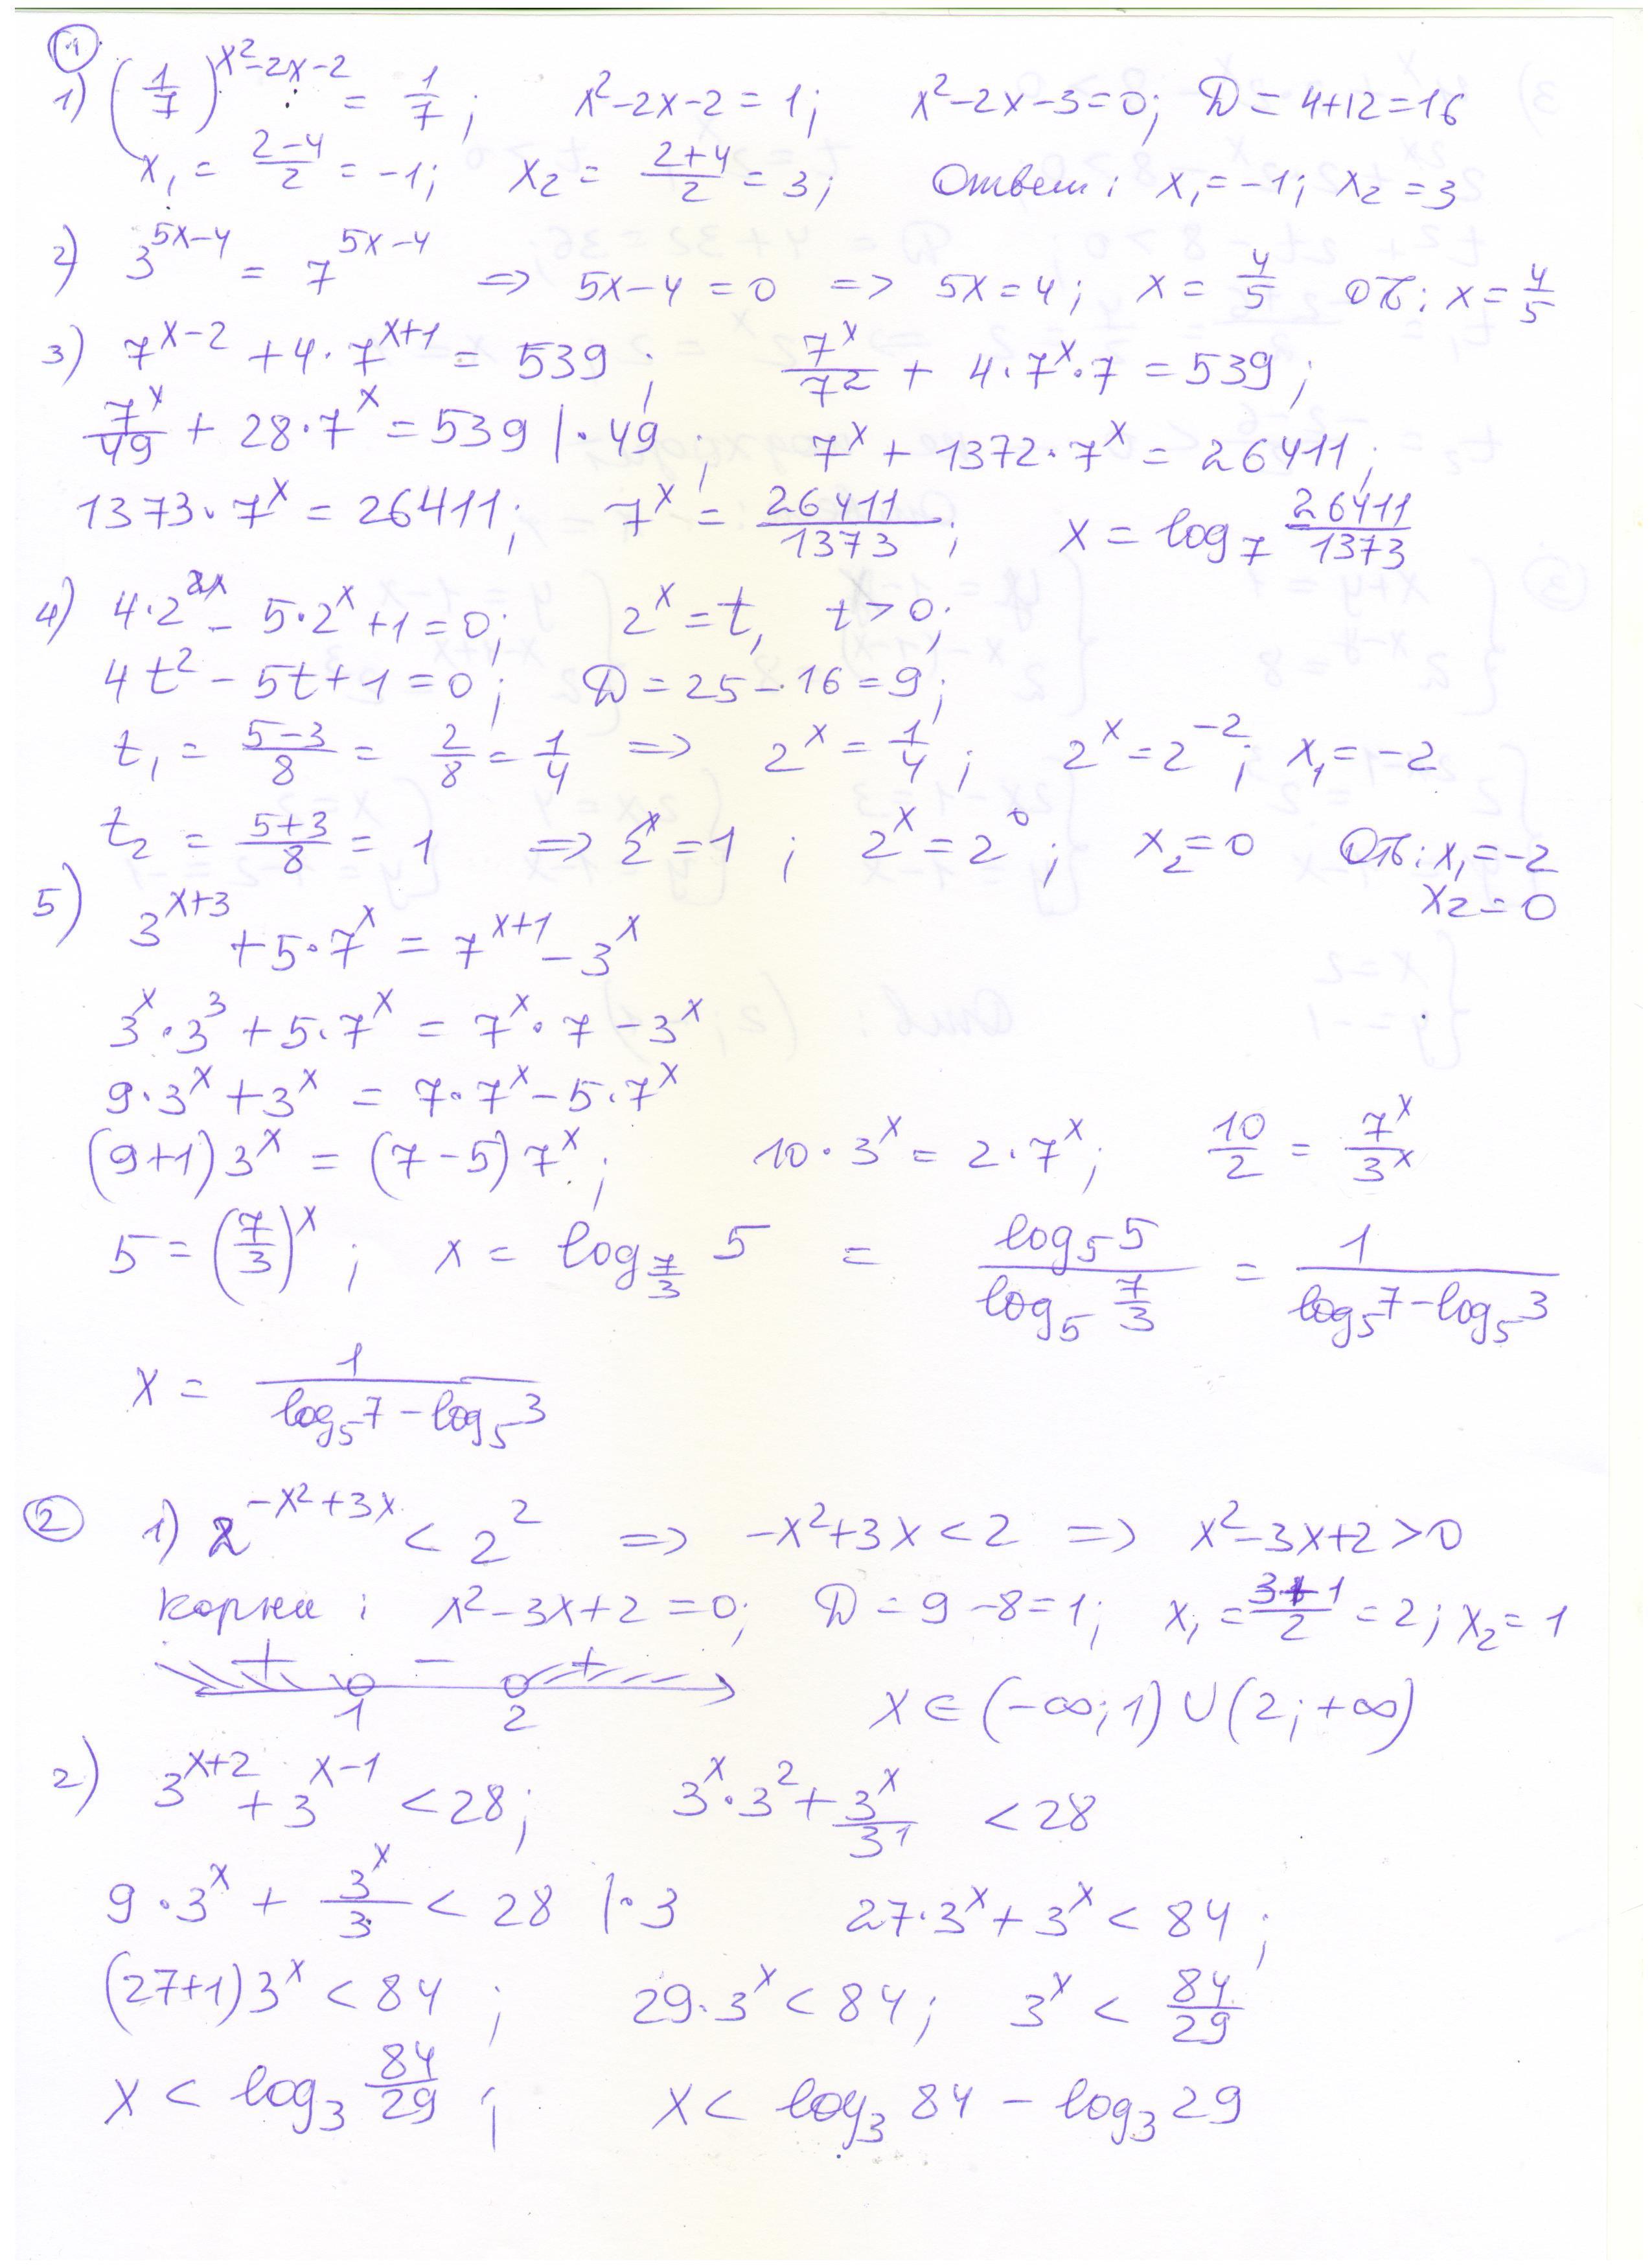 ①
1) (1/7)^(x²-2x-2) = 1/7; x²-2x-2=1; x²-2x-3=0; D=4+12=16
x₁ = (2-4)/2 = -1; x₂ = (2+4)/2 = 3; Ответ: x₁=-1; x₂=3
2) 3^(5x-4) = 7^(5x-4) => 5x-4=0 => 5x=4; x = 4/5 от: x = 4/5
3) 7^(x-2) + 4·7^(x+1) = 539; 7^x/7² + 4·7^x·7 = 539;
7^x/49 + 28·7^x = 539 |·49; 7^x + 1372·7^x = 26411;
1373·7^x = 26411; 7^x = 26411/1373; x = log₇ 26411/1373
4) 4·2^(2x) - 5·2^x + 1 = 0; 2^x = t, t>0;
4t² - 5t + 1 = 0; D = 25-16 = 9;
t₁ = (5-3)/8 = 2/8 = 1/4 => 2^x = 1/4; 2^x = 2^(-2); x₁ = -2
t₂ = (5+3)/8 = 1 => 2^x = 1; 2^x = 2^0; x₂=0 От: x₁=-2
x₂=0
5) 3^(x+3) + 5·7^x = 7^(x+1) - 3^x
3^x·3³ + 5·7^x = 7^x·7 - 3^x
9·3^x + 3^x = 7·7^x - 5·7^x
(9+1)3^x = (7-5)7^x; 10·3^x = 2·7^x; 10/2 = 7^x/3^x
5 = (7/3)^x; x = log_(7/3) 5 = log₅5/log₅(7/3) = 1/(log₅7 - log₅3)
x = 1/(log₅7 - log₅3)
② 1) 2^(-x²+3x) < 2² => -x²+3x<2 => x²-3x+2>0
корни: x²-3x+2=0; D=9-8=1; x₁ = (3+1)/2 = 2; x₂=1
+ - +
1 2 x ∈ (-∞;1) ∪ (2;+∞)
2) 3^(x+2) + 3^(x-1) < 28; 3^x·3² + 3^x/3¹ < 28
9·3^x + 3^x/3 < 28 |·3 27·3^x + 3^x < 84;
(27+1)3^x < 84; 29·3^x < 84; 3^x < 84/29
x < log₃ 84/29; x < log₃84 - log₃29